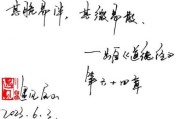 其脆易泮，其微易散。
——出自《道德经》
第六十四章
2023.6.3.